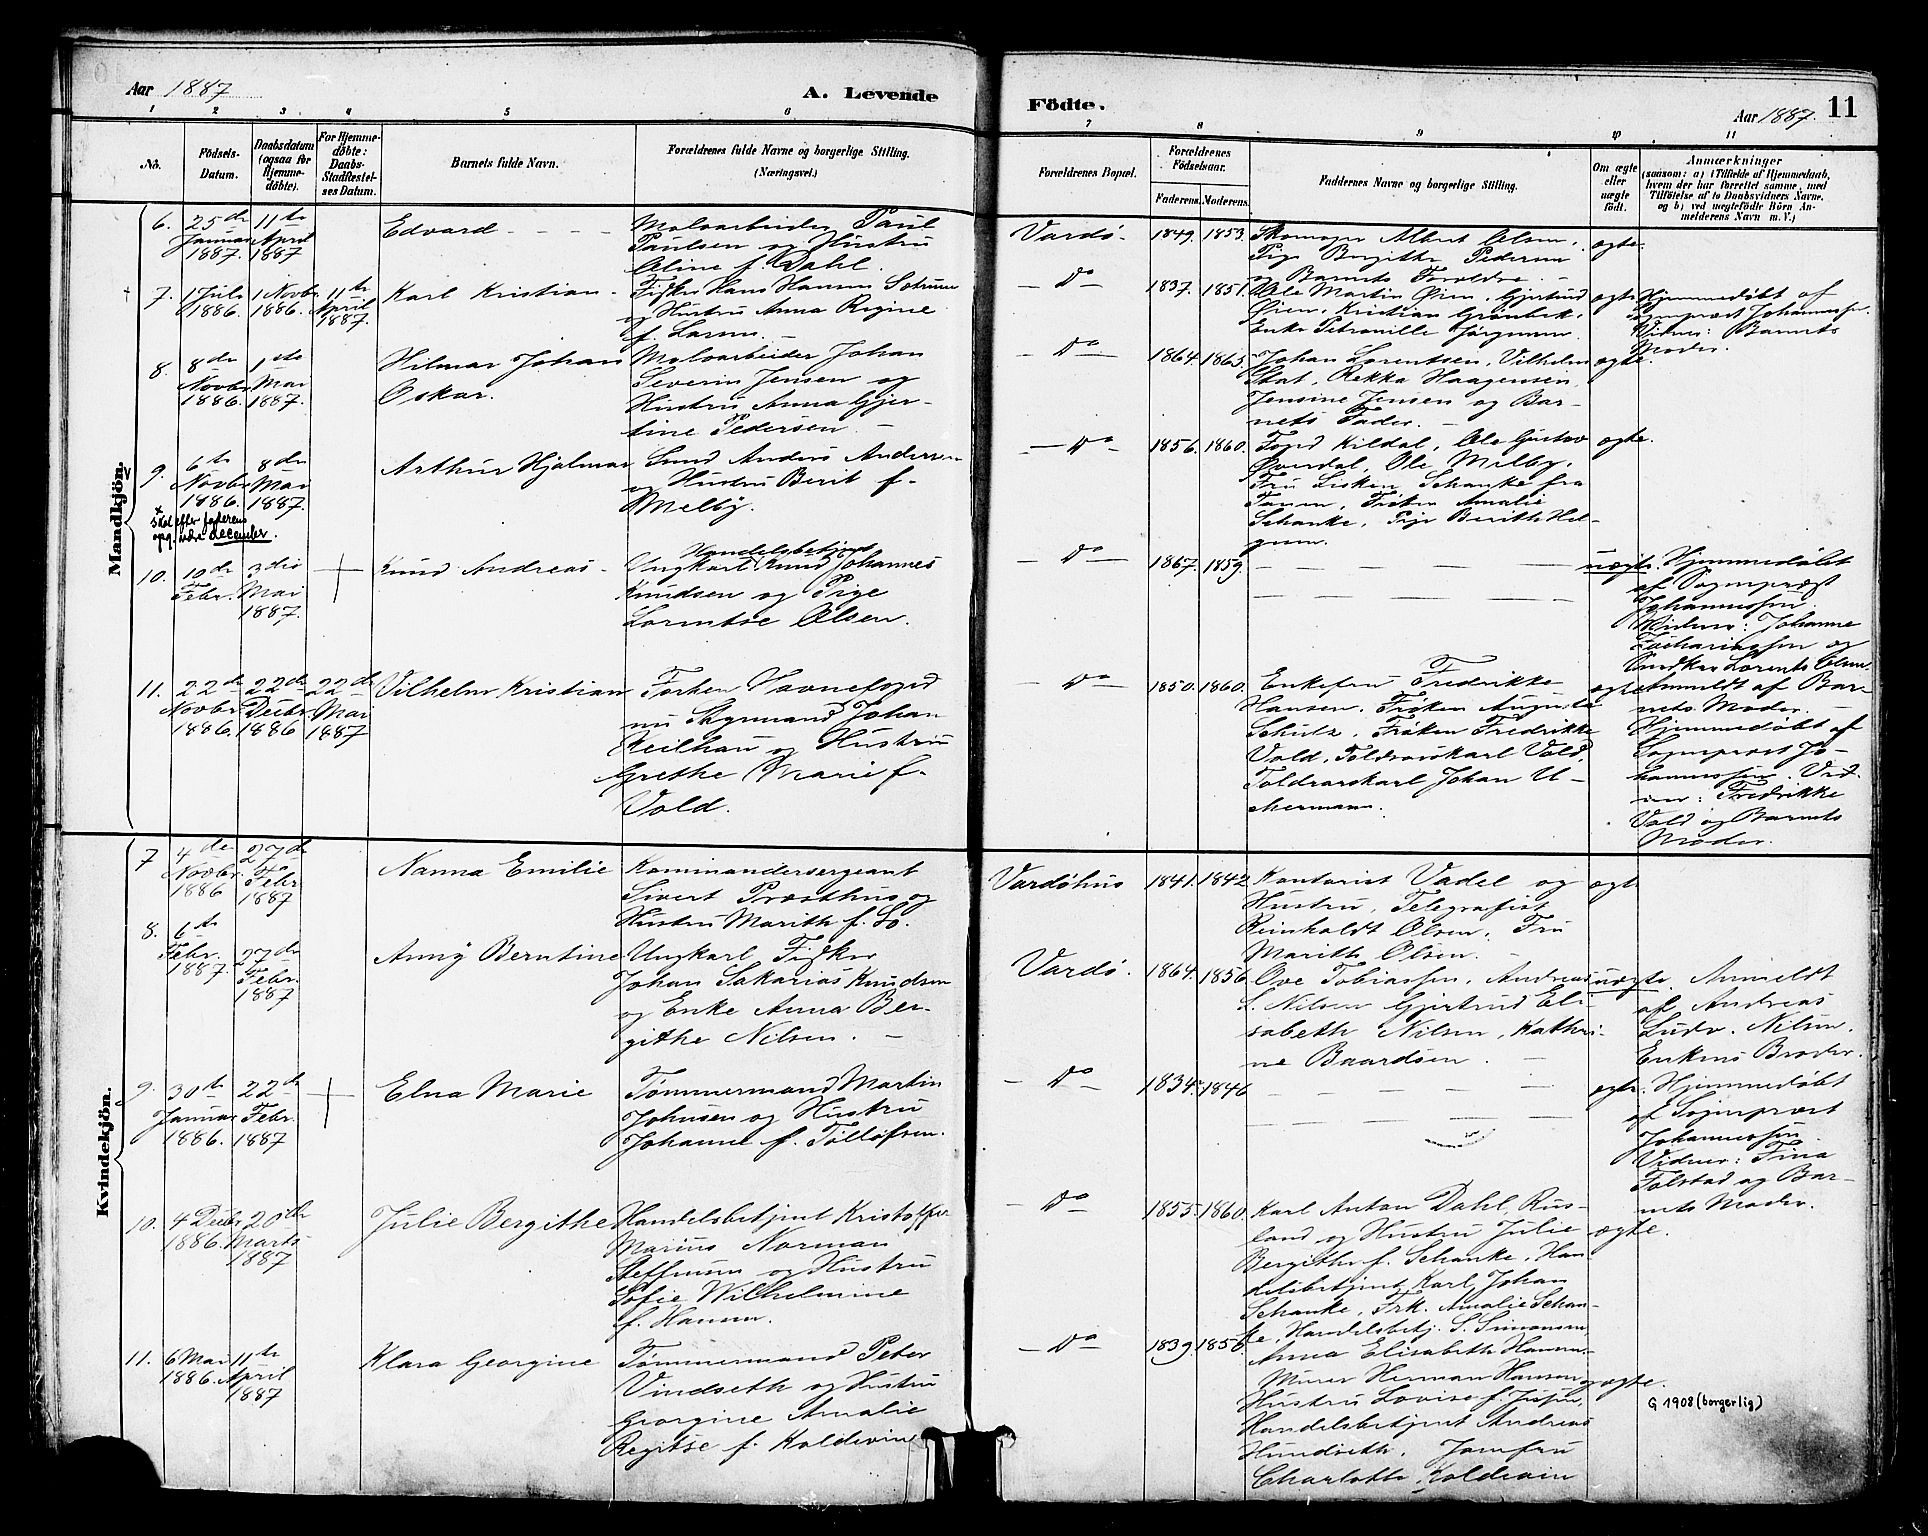 Aar 1887
A. Levende
Födte.
Aar 1887.
11
1 2 3 4 5 6 7 8 9 10 11
No.
Födsels-
Datum.
Daabsdatum
(ogsaa for
Hjemme-
döbte).
For Hjemme-
döbte:
Daabs-
Stadfæstel-
ses Datum.
Barnets fulde Navn.
Forældrenes fulde Navne og borgerlige Stilling.
(Næringsvei.)
Forældrenes Bopæl.
Forældrenes
Födselsaar.
Faderens.
Moderens.
Faddernes Navne og borgerlige Stilling.
Om ægte
eller
uægte
födt.
Anmærkninger
(saasom: a) i Tilfælde af Hjemmedaab,
hvem der har forrettet samme, med
Tilföielse af to Daabsvidners Navne,
og b) ved uægtefödte Börn An-
melderens Navn m. V.)
Mandkjön.
6.
25de
Januar
1887.
11te
April
1887
Edvard
Paul
Paulsen og Hustru
Oline f. Dahl.
Vardö.
1849. 1853.
Skomager Albert Olsen,
Pige Bergithe Pedersen
og Barnets Forældre.
ægte.
7.
1 Juli
1886.
1 Novbr
1886.
11te
April
1887.
Karl Kristian
Fisker Hans Hansen
og Hustru Anna Regine
f. Larsen
Do
1837. 1851.
Ole Martin Ören, Gjertrud
Ören, Kristian Grönbek,
Enke Petronille Jörgensen
ægte
Hjemmedöbt af
Sognepræst Johannessen.
Vidner: Barnets
Moder.
8.
8de
Novbr
1886.
1ste
Mai
1887.
Hilmar Johan
Oskar.
Johan
Severin Jensen og
Hustru Anna Gjer-
tine Pedersen.
Do
1864. 1865.
Johan Lorentsen, Vilhelm
Stat, Rekka Haagensen,
Jensine Jensen og Bar-
nets Fader.
ægte.
9.
6te
Novbr
1886.
8de
Mai
1887.
x
skal efter faderens
opg. være december.
Arthur Hjalmar
Anders Andersen
og Hustru Berit f.
Melby.
Do
1856. 1860.
Foged Kildal, Ole Gustav
Överdal, Ole Melby,
Fru Lisken Schanke fra
Tanen, Frøken Amalie
Schanke, Pige Berith Hel-
gesen.
ægte.
10.
10de
Febr.
3die
Mai
1887.
Knud Andreas
Handelsbetjent
Ungkarl Knud Johannes
Knudsen og Pige
Lorentse Olsen.
Do
1867. 1859.
uægte.
Hjemmedöbt
af Sognepræst
Johannessen.
Vidner: Johanne
Zachariassen og
Lorents Olsen.
Anmeldt af Bar-
nets Moder.
11.
22de
Novbr
1886.
22de
Decbr
1886
22de
Mai
1887
Vilhelm Kristian
Forhen Havnefoged
nu Styrmand Johan
Keilhau og Hustru
Grethe Marie f.
Vold.
Do
1850. 1860.
Enkefru Fredrikke
Hansen, Frøken Augusta
Schulz, Frøken Fredrikke
Vold, Toldroerskarl Vold,
Toldroerskarl Johan U-
chermann.
ægte
Hjemmedöbt af
Sognepræst Jo-
hannessen. Vid-
ner: Fredrikke
Vold og Barnets
Moder.
Kvindekjön.
7
4de
Novbr.
1886
27de
Febr
1887
Nanna Emilie
Kommandersergeant
Sivert Præsthus og
Hustru Marith f. Lo.
Vardöhus
1841. 1842
Kontorist Vadel og
Hustru, Telegrafist
Reinholdt Olsen, Fru
Marith Olsen.
ægte
8.
6te
Febr.
1887.
27de
Febr.
1887
Anny Berntine
Ungkarl Fisker
Johan Sakarias Knudsen
og Enke Anna Ber-
githe Nilsen.
Vardö.
1864. 1856
Ove Tobiassen, Andreas
L. Nilsen Gjertrud Eli-
sabeth Nilsen, Kathri-
ne Baardsen.
uægte.
Anmeldt
af Andreas
Ludv. Nilsen.
Enkens Broder.
9.
30te
Januar
1886.
22de
Febr.
1887
Elna Marie
Tømmermand Martin
Johnsen og Hustru
Johanne f. Tollofsen.
Do
1834. 1846
ægte.
Hjemmedöbt
af Sognepræst
Johannessen.
Vidner: Fina
Tolstad og Bar-
nets Moder.
10.
4 Decbr
1886.
20de
Marts
1887
Julie Bergithe
Handelsbetjent Kristoffer
Marius Norman
Steffensen og Hustru
Sofie Wilhelmine
f. Hansen.
Do
1855. 1860.
Karl Anton Dahl, Rus-
land og Hustru Julie
Bergithe f. Schanke, Han-
delsbetjent Karl Johan
Schanke, Frk. Amalie Schan-
ke, Handelsbetj. S. Simonsen,
ægte.
11.
6 Mai
1886.
11te
April
1887
Klara Georgine
Tømmermand Peter
Vindseth og Hustru
Georgine Amalie
Regitse f. Koldevin
Do
1839. 1856.
Anna Elisabeth Hansen,
Murer Herman Hansen og
Hustru Lovise f. Jessen,
Handelsbetjent Andreas
Hundseth, Jomfru
Charlotte Koldevin
ægte.
G 1908 (borgerlig)